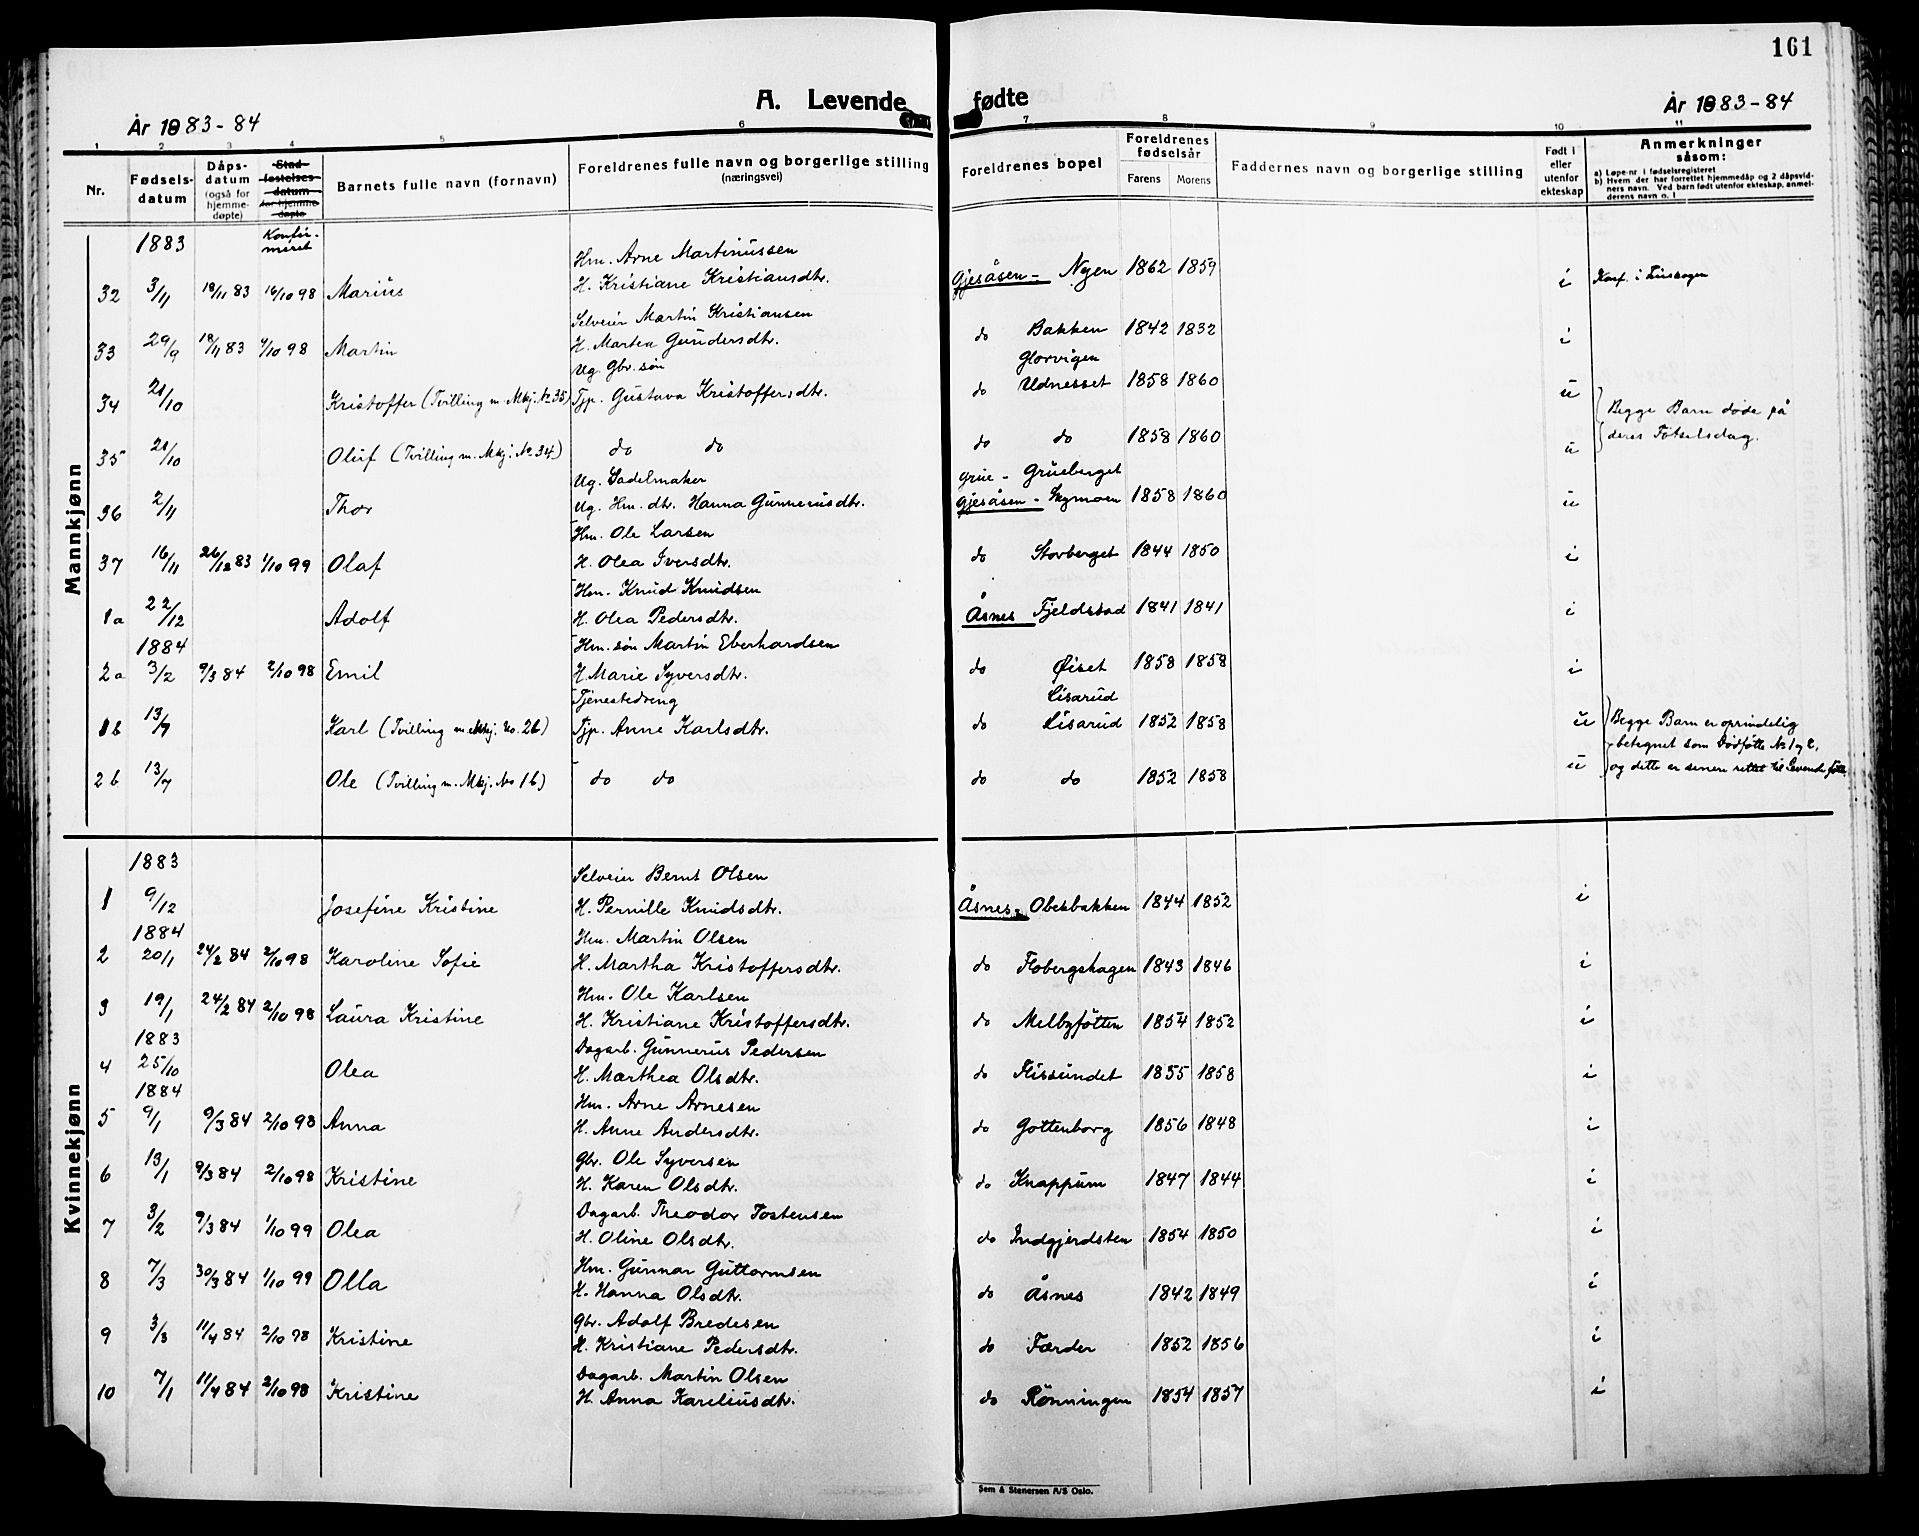 161
A. Levende fødte
År 1883-84
År 1883-84
1 2 3 4 5 6 7 8 9 10 11
Nr. Fødselsdatum Dåpsdatum (også for hjemmedøpte) Stadfestelsesdatum for hjemmedøpte Barnets fulle navn (fornavn) Foreldrenes fulle navn og borgerlige stilling (næringsvei) Foreldrenes bopel Foreldrenes fødselsår Farens Morens Faddernes navn og borgerlige stilling Født i eller utenfor ekteskap Anmerkninger såsom:
a) Løpe-nr i fødselsregisteret
b) Hvem der har forrettet hjemmedåp og 2 dåpsvidners navn. Ved barn født utenfor ekteskap, anmelderens navn o. l
Mannkjønn
1883 Konfirmeret
Hm. Arne Martinussen
32 3/11 18/11 83 16/10 98 Marius H. Kristiane Kristiansdtr. Gjesåsen - Nyen 1862 1859 i Konf. i
Selveier Martin Kristiansen
33 29/9 18/11 83 9/10 98 Martin H. Martea Gundersdtr. do Bakken 1842 1832 i
Ug. Gbr. søn Glorvigen
34 21/10 Kristoffer (Tvilling m. Mkj. No 35) Tjp. Gustava Kristoffersdtr. do Udnesset 1858 1860 u Begge Barn døde på
35 21/10 Oluf (Tvilling m. Mkj. No 34) do do do do 1858 1860 u deres Fötselsdag.
Ug. Sadelmaker Grue - Grueberget
36 2/11 Thor Ug. Hm. dtr. Hanna Gunnerusdtr. Gjesåsen - Lymoen 1858 1860 u
Hm. Ole Larsen
37 16/11 26/12 83 1/10 99 Olaf H. Olea Iversdtr. do Storberget 1844 1850 i
Hm. Knud Knudsen
1a 22/12 Adolf H. Olea Pedersdtr. Åsnes Fjeldstad 1841 1841 i
1884 Hm. søn Martin Eberhardsen
2a 3/2 9/3 84 2/10 98 Emil H. Marie Syversdtr. do Øiset 1858 1858 i
Tjenestedreng Lisarud
1b 13/7 Karl (Tvilling m. Mkj. No. 2b) Tjp. Anne Karlsdtr. do Lisarud 1852 1858 u Begge Barn er oprindelig
betegnet som Dödfötte No 1 og 2,
2b 13/7 Ole (Tvilling m. Mkj. No 1b) do do do do 1852 1858 u og dette er senere rettet til Levende föte
Kvinnekjønn
1883 Selveier Bernt Olsen
1 9/12 Josefine Kristine H. Pernille Knudsdtr. Åsnes - Obekbakken 1844 1852 i
1884 Hm. Martin Olsen
2 20/1 24/2 84 2/10 98 Karoline Sofie H. Martha Kristoffersdtr. do Flobergshagen 1843 1846 i
Hm. Ole Karlsen
3 19/1 24/2 84 2/10 98 Laura Kristine H. Kristiane Kristoffersdtr. do Melbyfötten 1854 1852 i
1883 Dagarb. Gunnerus Pedersen
4 25/10 Olea H. Marthea Olsdtr. do Flissundet 1855 1858 i
1884 Hm. Arne Arnesen
5 9/1 9/3 84 2/10 98 Anna H. Anne Andersdtr. do Gottenborg 1856 1848 i
Gbr. Ole Syversen
6 13/1 9/3 84 2/10 98 Kristine H. Karen Olsdtr. do Knappum 1847 1844 i
Dagarb. Theodor Tostensen
7 3/2 9/3 84 1/10 99 Olea H. Oline Olsdtr. do Indgjerdsten 1854 1850 i
Hm. Gunnar Guttormsen
8 7/3 30/3 84 1/10 99 Olla H. Hanna Olsdtr. do Åsnes 1842 1849 i
Gbr. Adolf Bredesen
9 3/3 11/4 84 2/10 98 Kristine H. Kristiane Pedersdtr. do Færder 1852 1856 i
Dagarb. Martin Olsen
10 7/1 11/4 84 2/10 98 Kristine H. Anna Kareliusdtr. do Rönningen 1854 1857 i
Sem & Stenersen A/S Oslo.